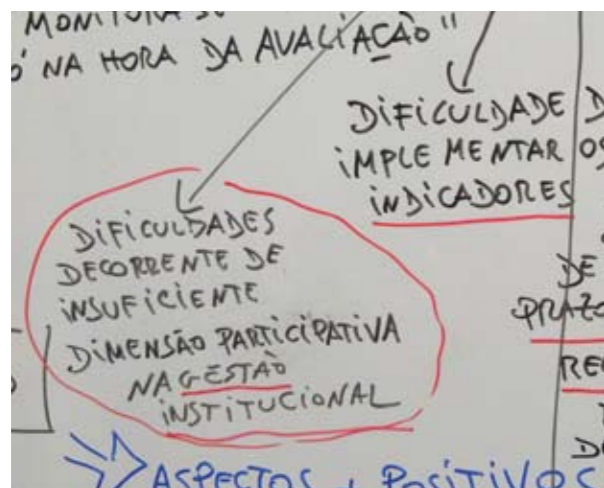 MONITORA
Ó NA HORA DA AVALIAÇÃO"
DIFICULDADE D
IMPLEMENTAR OS
INDICADORES
DIFICULDADES
DECORRENTE DE
INSUFICIENTE
DIMENSÃO PARTICIPATIVA
NA GESTÃO
INSTITUCIONAL
DE
PRAZO
REC
ASPECTOS POSITIVOS